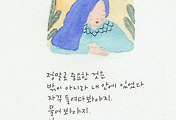 정말로 중요한 것은
밖이 아니라 내 안에 있었다
자꾸 들여다봐야지.
물어봐야지.